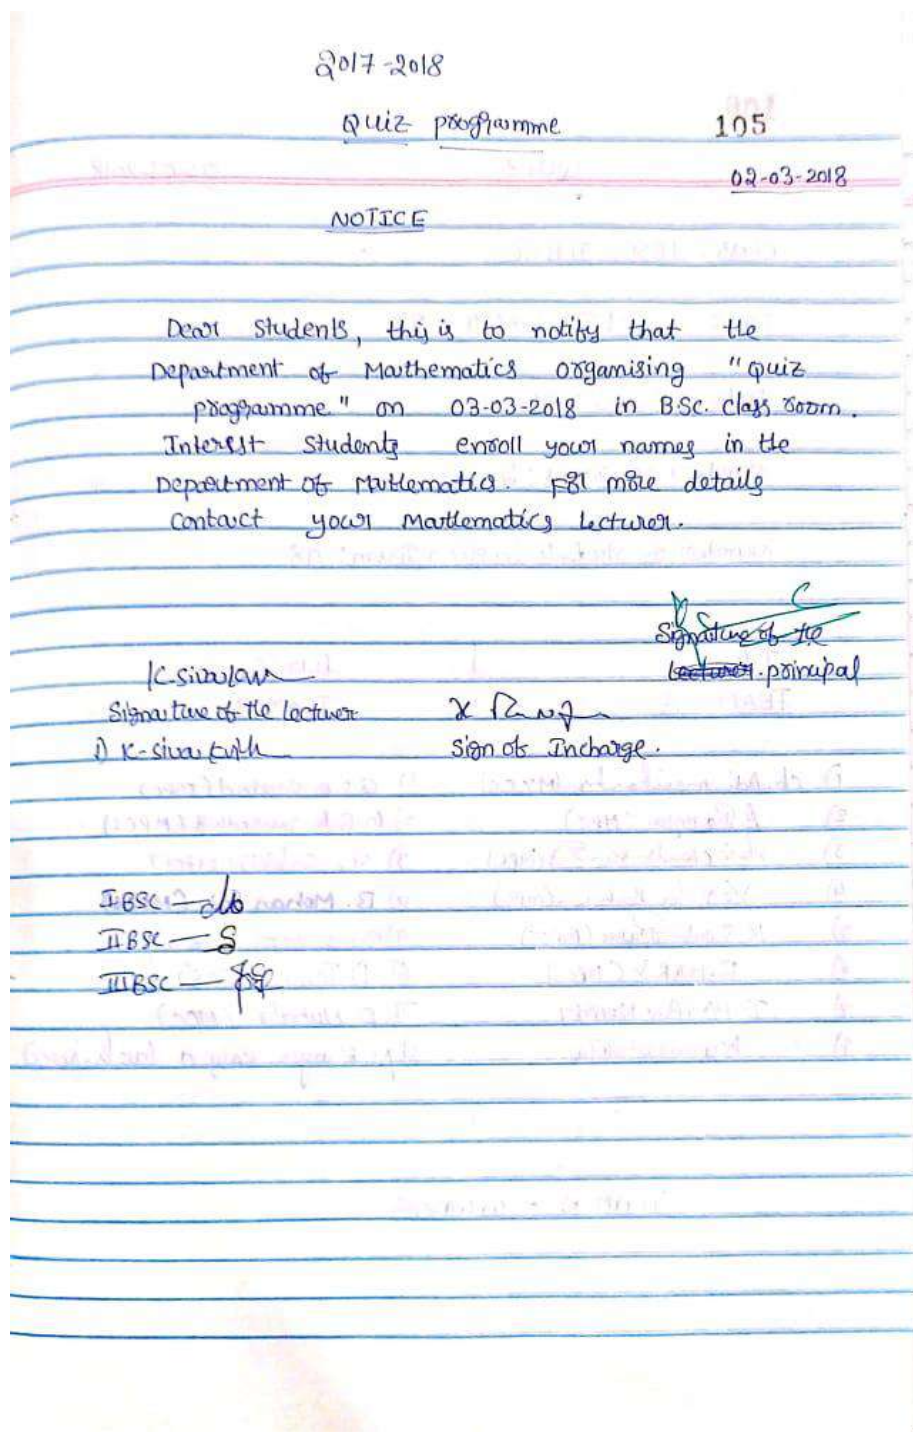 2017-2018
Quiz programme 105
02-03-2018
NOTICE
Dear students, this is to notify that the
Department of Mathematics organising "Quiz
programme" on 03-03-2018 in B.Sc. class room.
Interest students enroll your names in the
Department of Mathematics. For more details
contact your Mathematics lecturer.
Signature of the
Lecturer. principal
Signature of the lecturer
Sign of Incharge.
1)
I BSC —
II BSC —
III BSC —